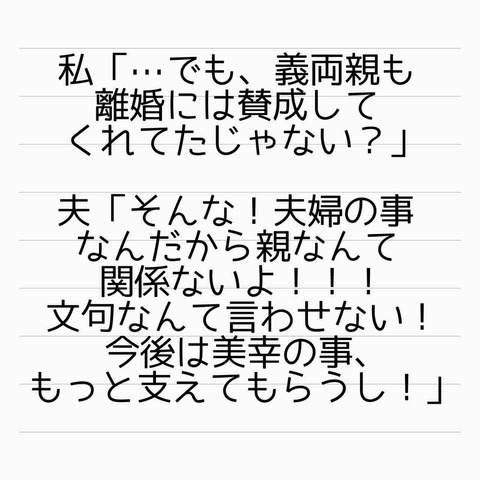 私「…でも、義両親も
離婚には賛成して
くれてたじゃない？」
夫「そんな！夫婦の事
なんだから親なんて
関係ないよ！！！
文句なんて言わせない！
今後は美幸の事、
もっと支えてもらうし！」